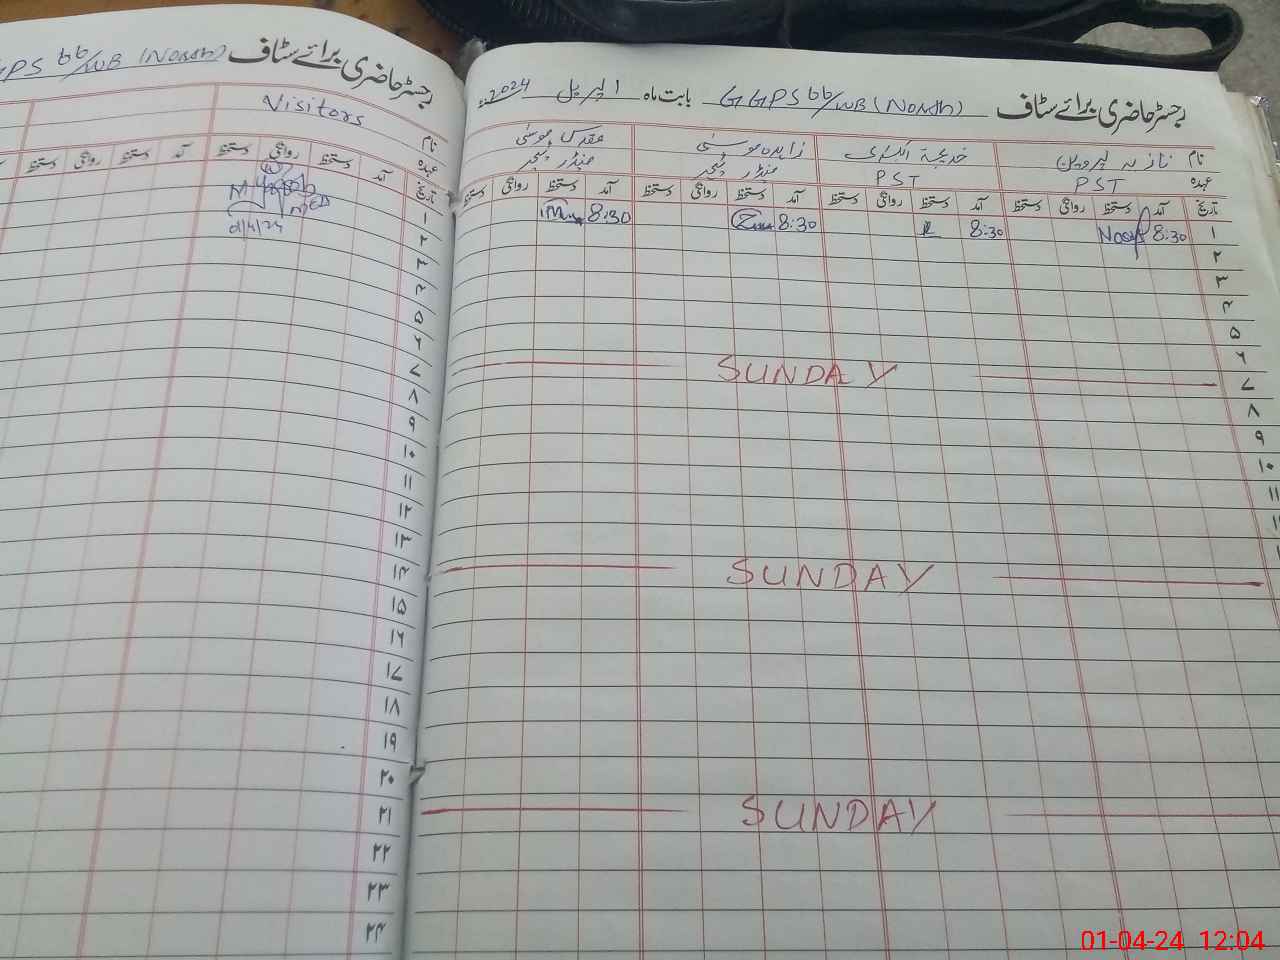 GPS 66/WB (North) رجسٹر حاضری برائے سٹاف
Visitors نام
عہدہ
آمد دستخط روانگی دستخط آمد دستخط روانگی دستخط تاریخ
۱
۲
۳
۴
۵
۶
۷
۸
۹
۱۰
۱۱
۱۲
۱۳
۱۴
۱۵
۱۶
۱۷
۱۸
۱۹
۲۰
۲۱
۲۲
۲۳
۲۴
رجسٹر حاضری برائے سٹاف GGPS 66/WB (North) بابت ماہ اپریل 2024ء
نام نازیہ پروین خدیجۃ الکبریٰ زاہدہ موسیٰ
عہدہ PST PST
تاریخ آمد دستخط روانگی دستخط آمد دستخط روانگی دستخط آمد دستخط روانگی دستخط آمد دستخط روانگی دستخط
۱ 8:30 8:30 8:30 8:30
۲
۳
۴
۵
۶
۷ SUNDAY
۸
۹
۱۰
۱۱
SUNDAY
SUNDAY
01-04-24 12:04